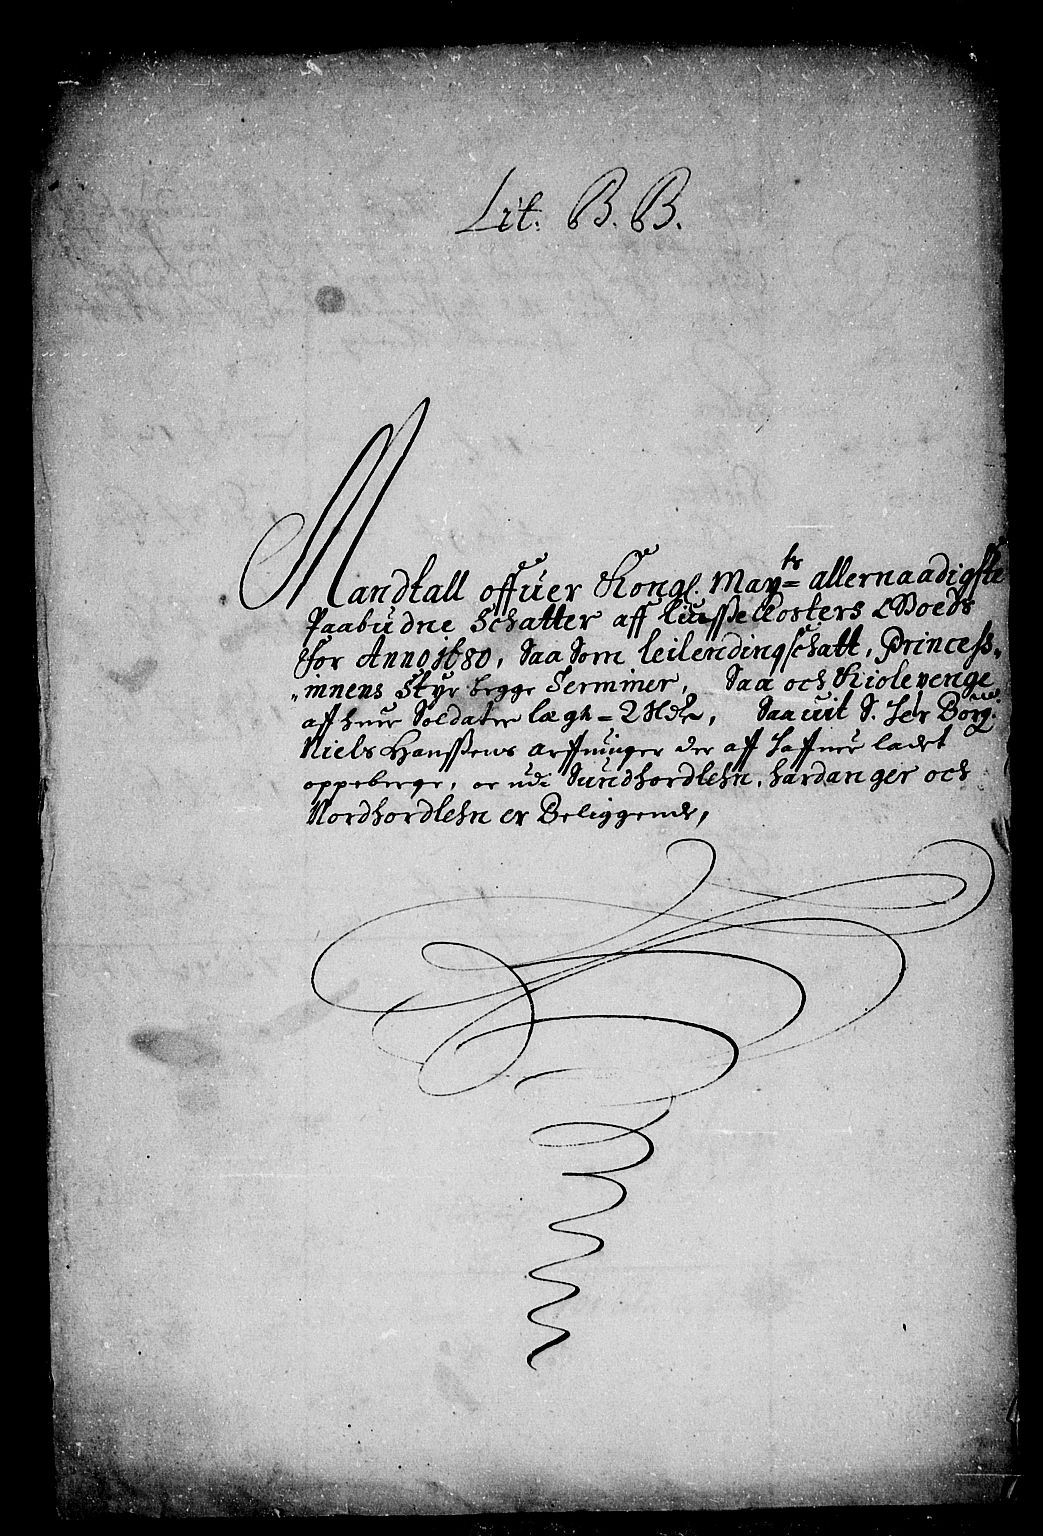 Lit. B. B.
Mandtall offuer Kongl. May:ts allernaadigste
Paabudne Schatter aff Liusseclosters Goeds
for Anno 1680, Saa Som leilendingschatt, Princess,,
,,innens Styr begge Terminer, Saa och Kiolepenge
aff huer Soldater lægh = 2 Rdr, Saauit S. Her Borg:
Niels Hanssens arffuinger der aff haffuer ladet
oppeberge, oc udi Sundhordlehn, hardanger och
Nordhordlehn er Beliggende,